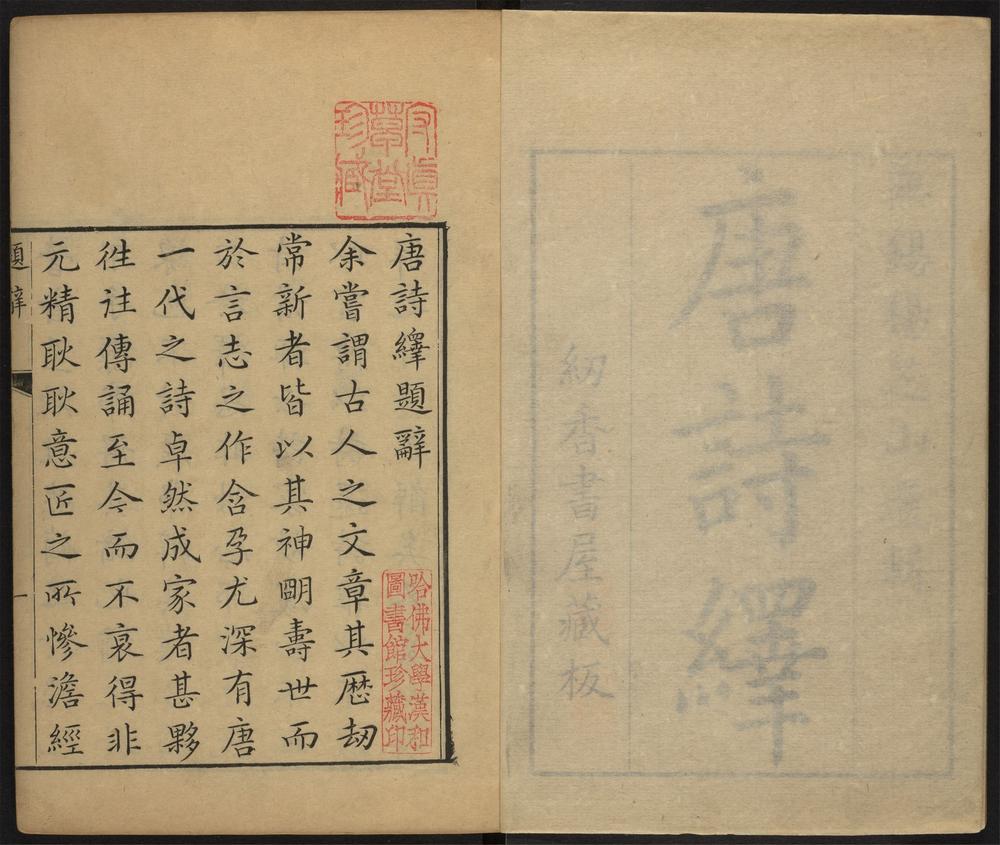 唐詩繹
紉香書屋藏板
唐詩繹題辭
余嘗謂古人之文章其歷劫
常新者皆以其神明壽世而
於言志之作含孕尤深有唐
一代之詩卓然成家者甚夥
徃徃傳誦至今而不衰得非
元精耿耿意匠之所慘澹經
題辭
一
哈佛大學漢和
圖書館珍藏印